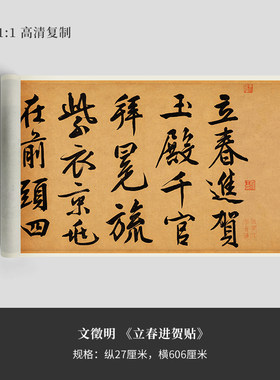 1:1 高清复制
立春進賀
玉殿千官
拜冕旒
紫衣京兆
在前頭四
文徵明 《立春进贺贴》
规格：纵27厘米，横606厘米